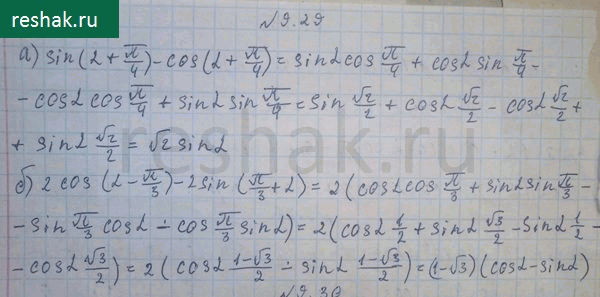 reshak.ru
№9.29
а) sin(α + π/4) - cos(α + π/4) = sinα cos π/4 + cosα sin π/4 -
- cosα cos π/4 + sinα sin π/4 = sin √2/2 + cosα √2/2 - cosα √2/2 +
+ sinα √2/2 = √2 sinα
б) 2 cos (α - π/3) - 2 sin (π/3 + α) = 2 (cosα cos π/3 + sinα sin π/3 -
- sin π/3 cosα - cos π/3 sinα) = 2 (cosα 1/2 + sinα √3/2 - sinα 1/2 -
- cosα √3/2) = 2 ( cosα (1-√3)/2 - sinα (1-√3)/2 ) = (1-√3) (cosα - sinα)
№9.30
reshak.ru